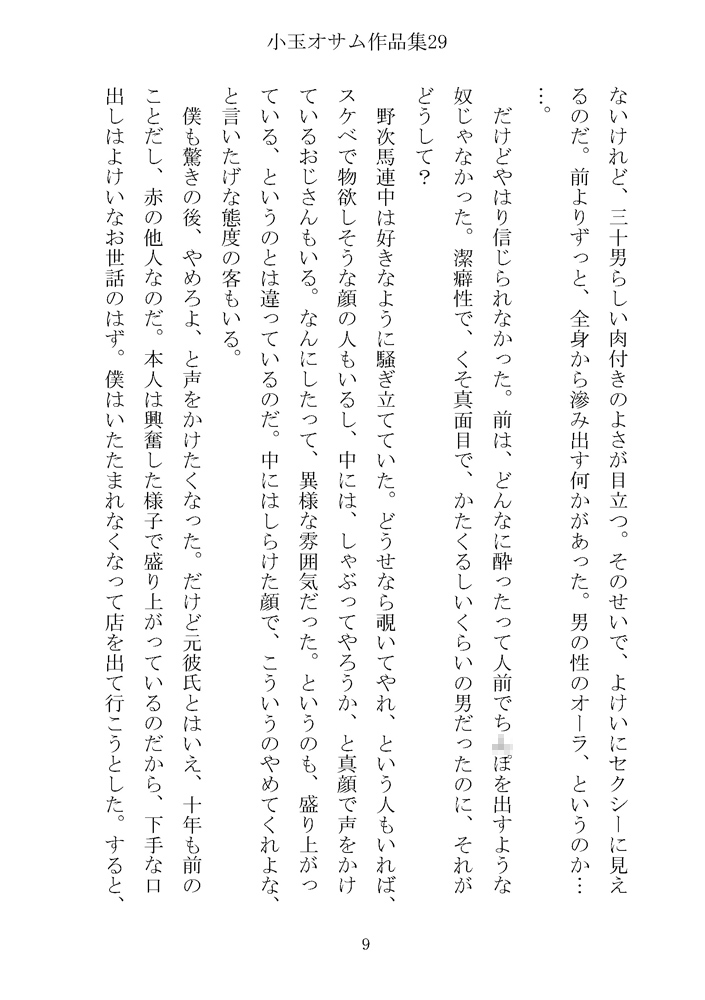 小玉オサム作品集29
ないけれど、三十男らしい肉付きのよさが目立つ。そのせいで、よけいにセクシーに見え
るのだ。前よりずっと、全身から滲み出す何かがあった。男の性のオーラ、というのか…
…。
だけどやはり信じられなかった。前は、どんなに酔ったって人前でち ぽを出すような
奴じゃなかった。潔癖性で、くそ真面目で、かたくるしいくらいの男だったのに、それが
どうして？
野次馬連中は好きなように騒ぎ立てていた。どうせなら覗いてやれ、という人もいれば、
スケベで物欲しそうな顔の人もいるし、中には、しゃぶってやろうか、と真顔で声をかけ
ているおじさんもいる。なんにしたって、異様な雰囲気だった。というのも、盛り上がっ
ている、というのとは違っているのだ。中にはしらけた顔で、こういうのやめてくれよな、
と言いたげな態度の客もいる。
僕も驚きの後、やめろよ、と声をかけたくなった。だけど元彼氏とはいえ、十年も前の
ことだし、赤の他人なのだ。本人は興奮した様子で盛り上がっているのだから、下手な口
出しはよけいなお世話のはず。僕はいたたまれなくなって店を出て行こうとした。すると、
9